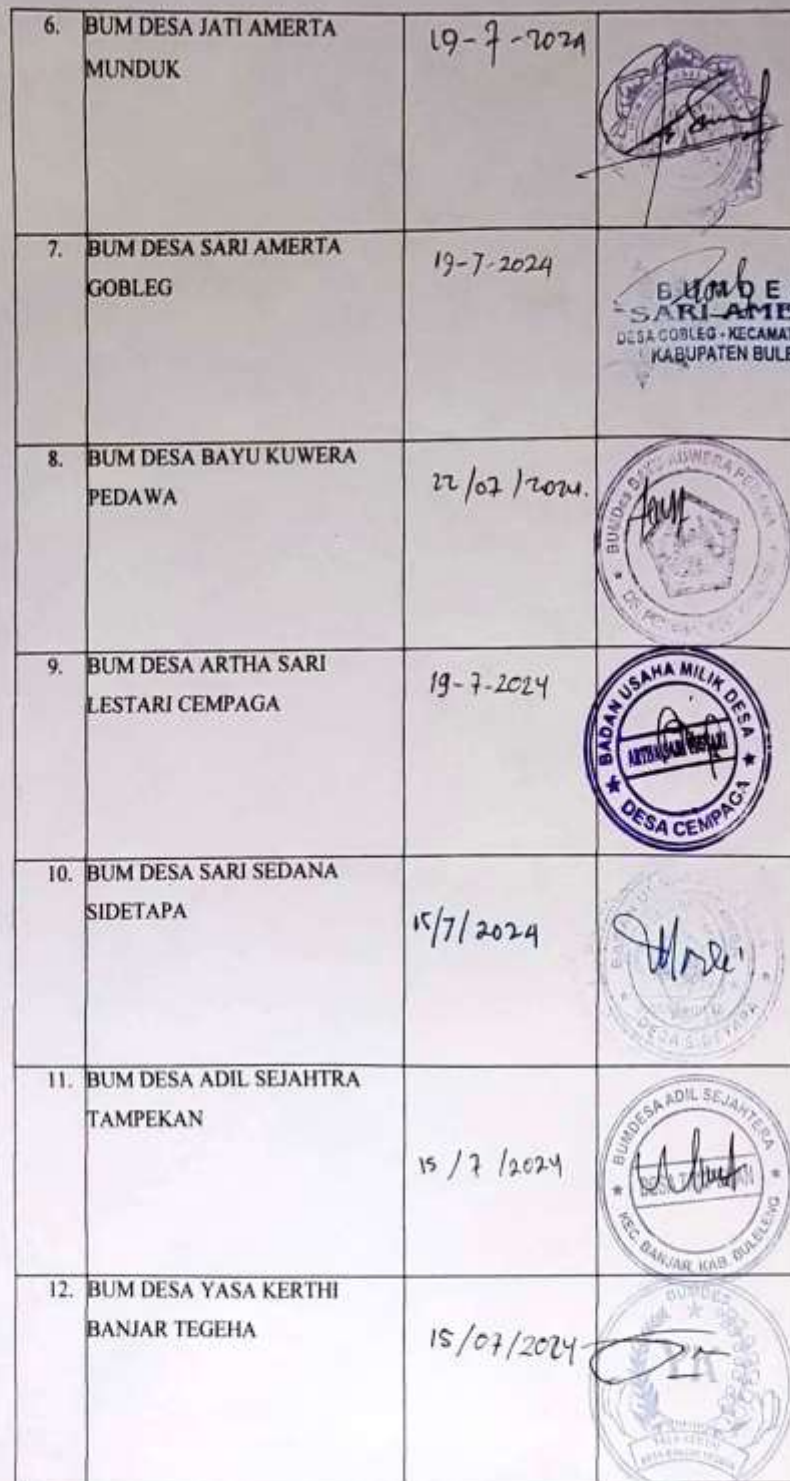 6. BUM DESA JATI AMERTA
MUNDUK
19-7-2024
7. BUM DESA SARI AMERTA
GOBLEG
19-7-2024
BUMDE
SARI AME
DESA GOBLEG - KECAMAT
KABUPATEN BULE
8. BUM DESA BAYU KUWERA
PEDAWA
22/07/2024.
BUMDes BAYU KUWERA PEDAWA
9. BUM DESA ARTHA SARI
LESTARI CEMPAGA
19-7-2024
BADAN USAHA MILIK DESA
ARTHA SARI LESTARI
DESA CEMPAGA
10. BUM DESA SARI SEDANA
SIDETAPA
15/7/2024
DESA SIDETAPA
11. BUM DESA ADIL SEJAHTRA
TAMPEKAN
15/7/2024
BUMDESA ADIL SEJAHTERA
KEC. BANJAR, KAB. BULELENG
12. BUM DESA YASA KERTHI
BANJAR TEGEHA
15/07/2024
BUMDES